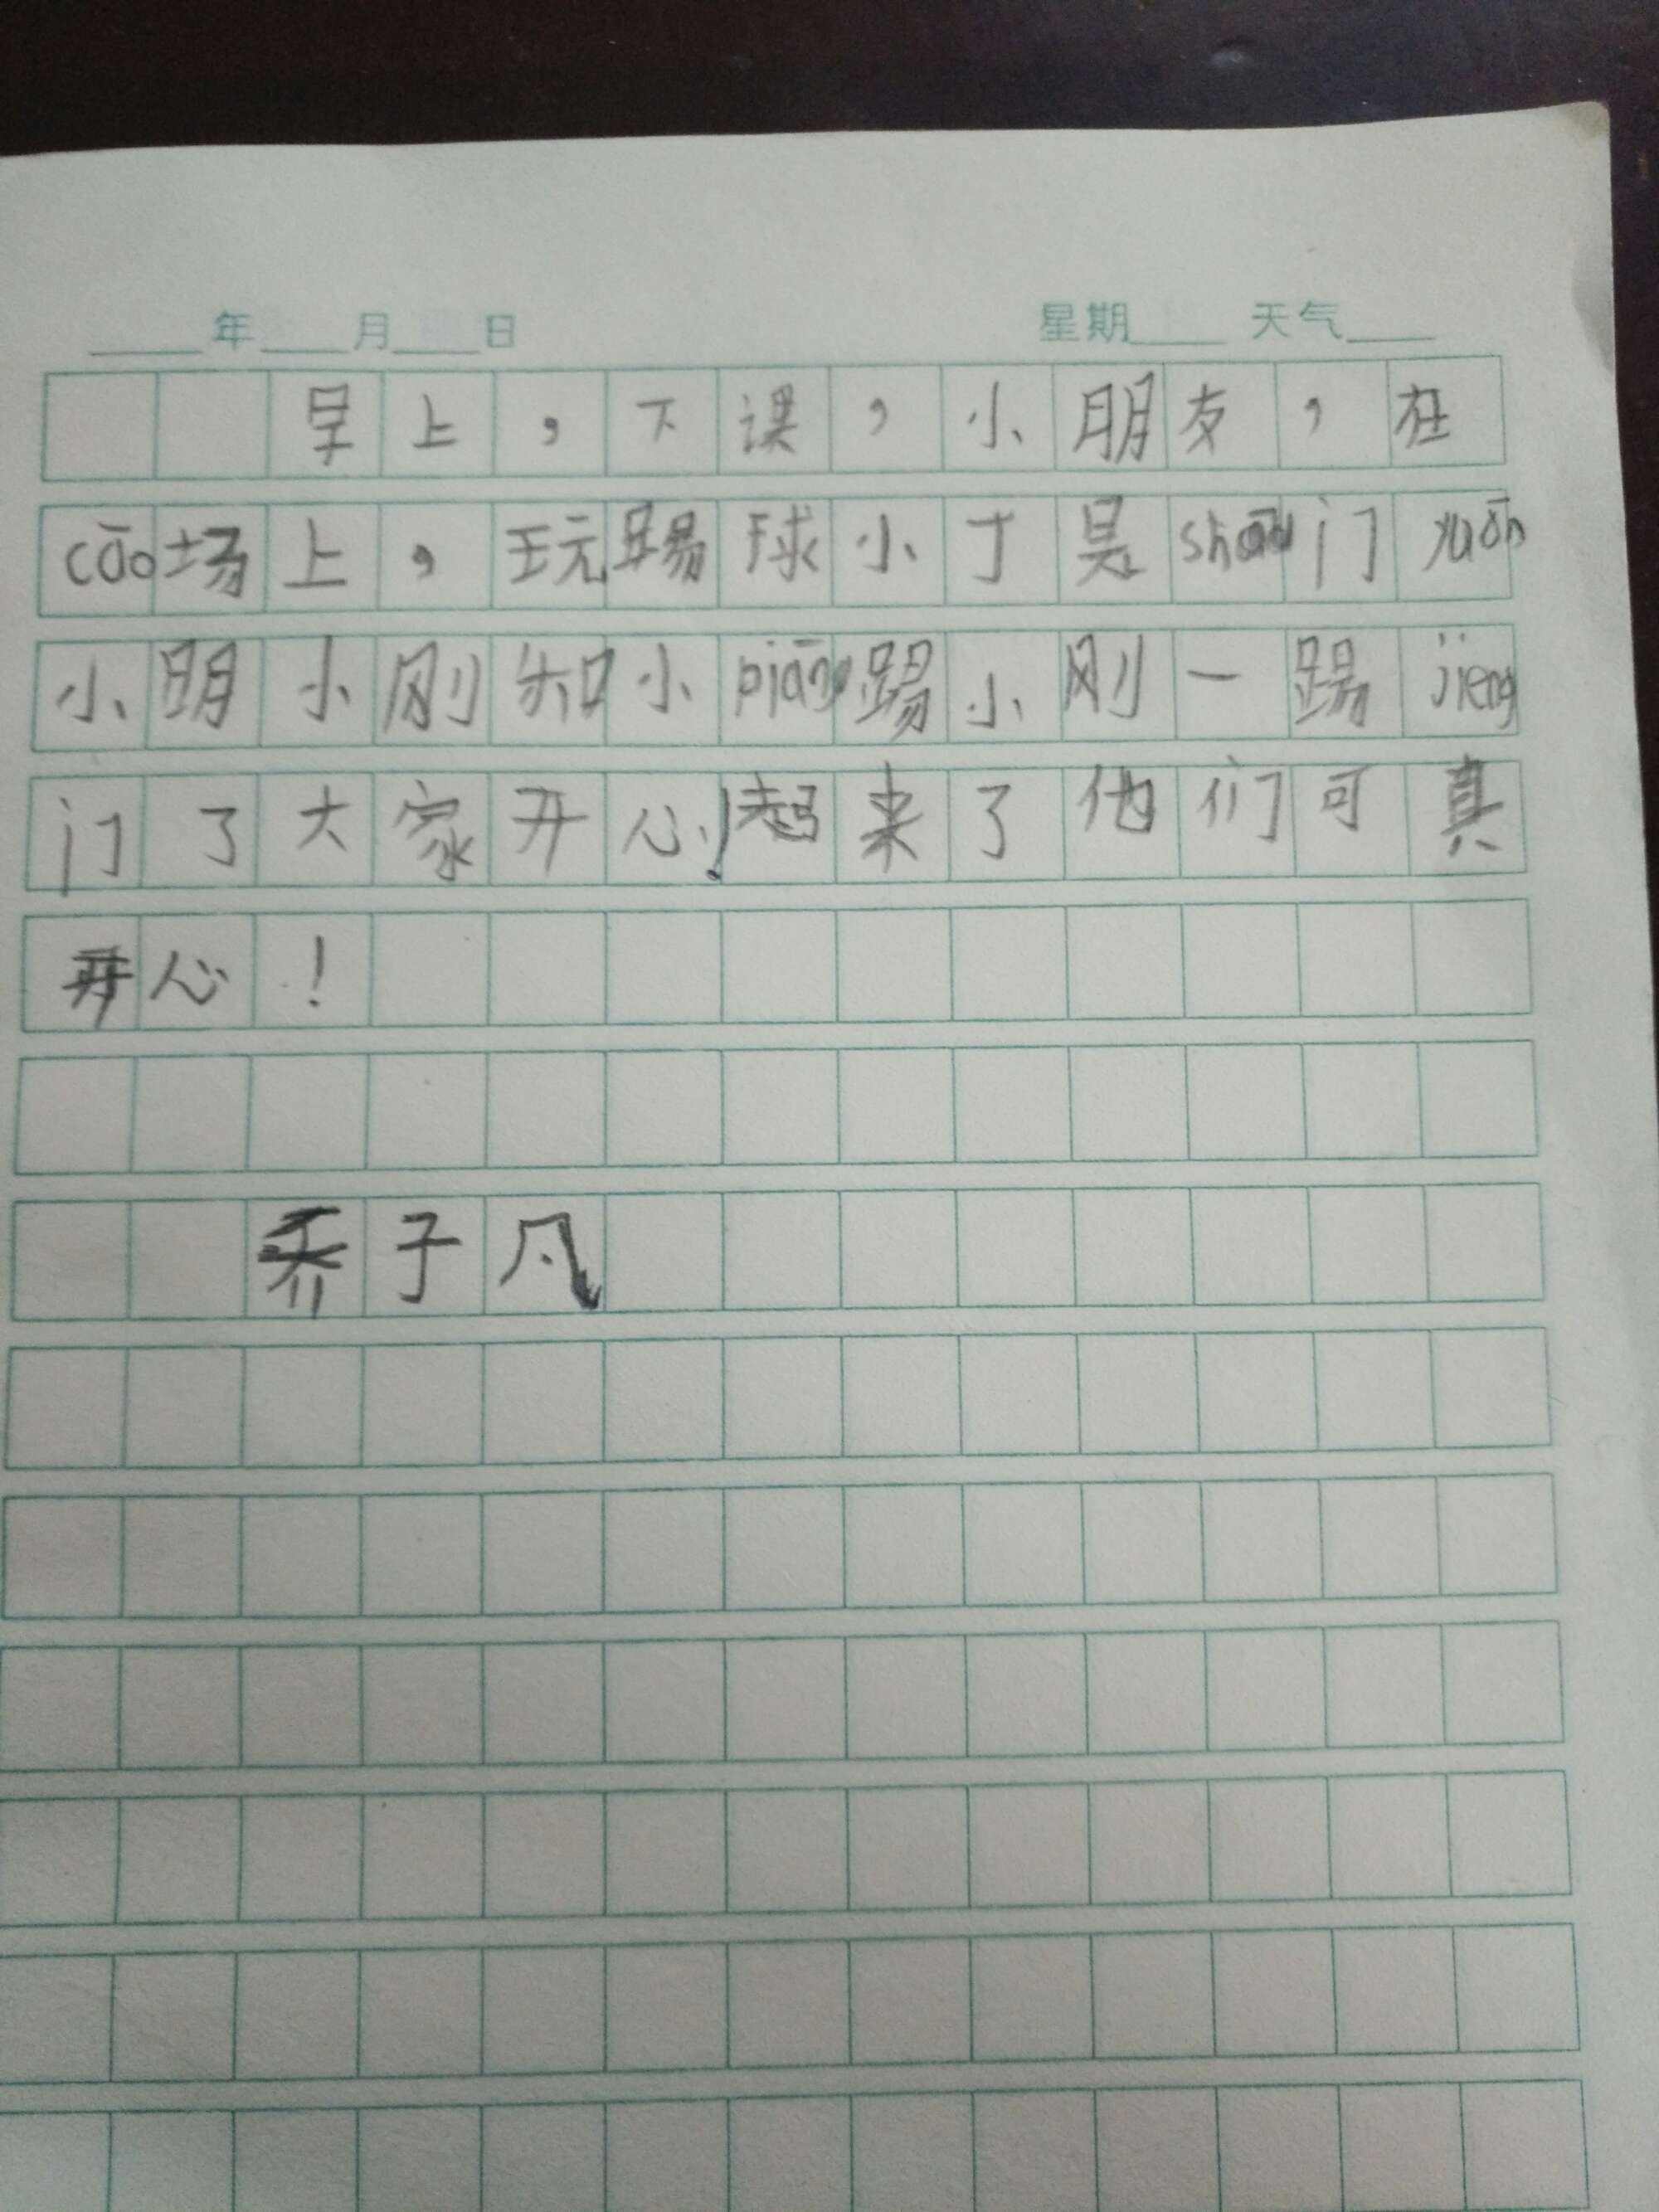 年 月 日 星期 天气
早上，下课，小朋友，在
cāo场上，玩踢球小丁是shǒu门yuán
小明小刚和小 踢小刚一踢jieng
门了大家开心!起来了他们可真
开心！
乔子凡